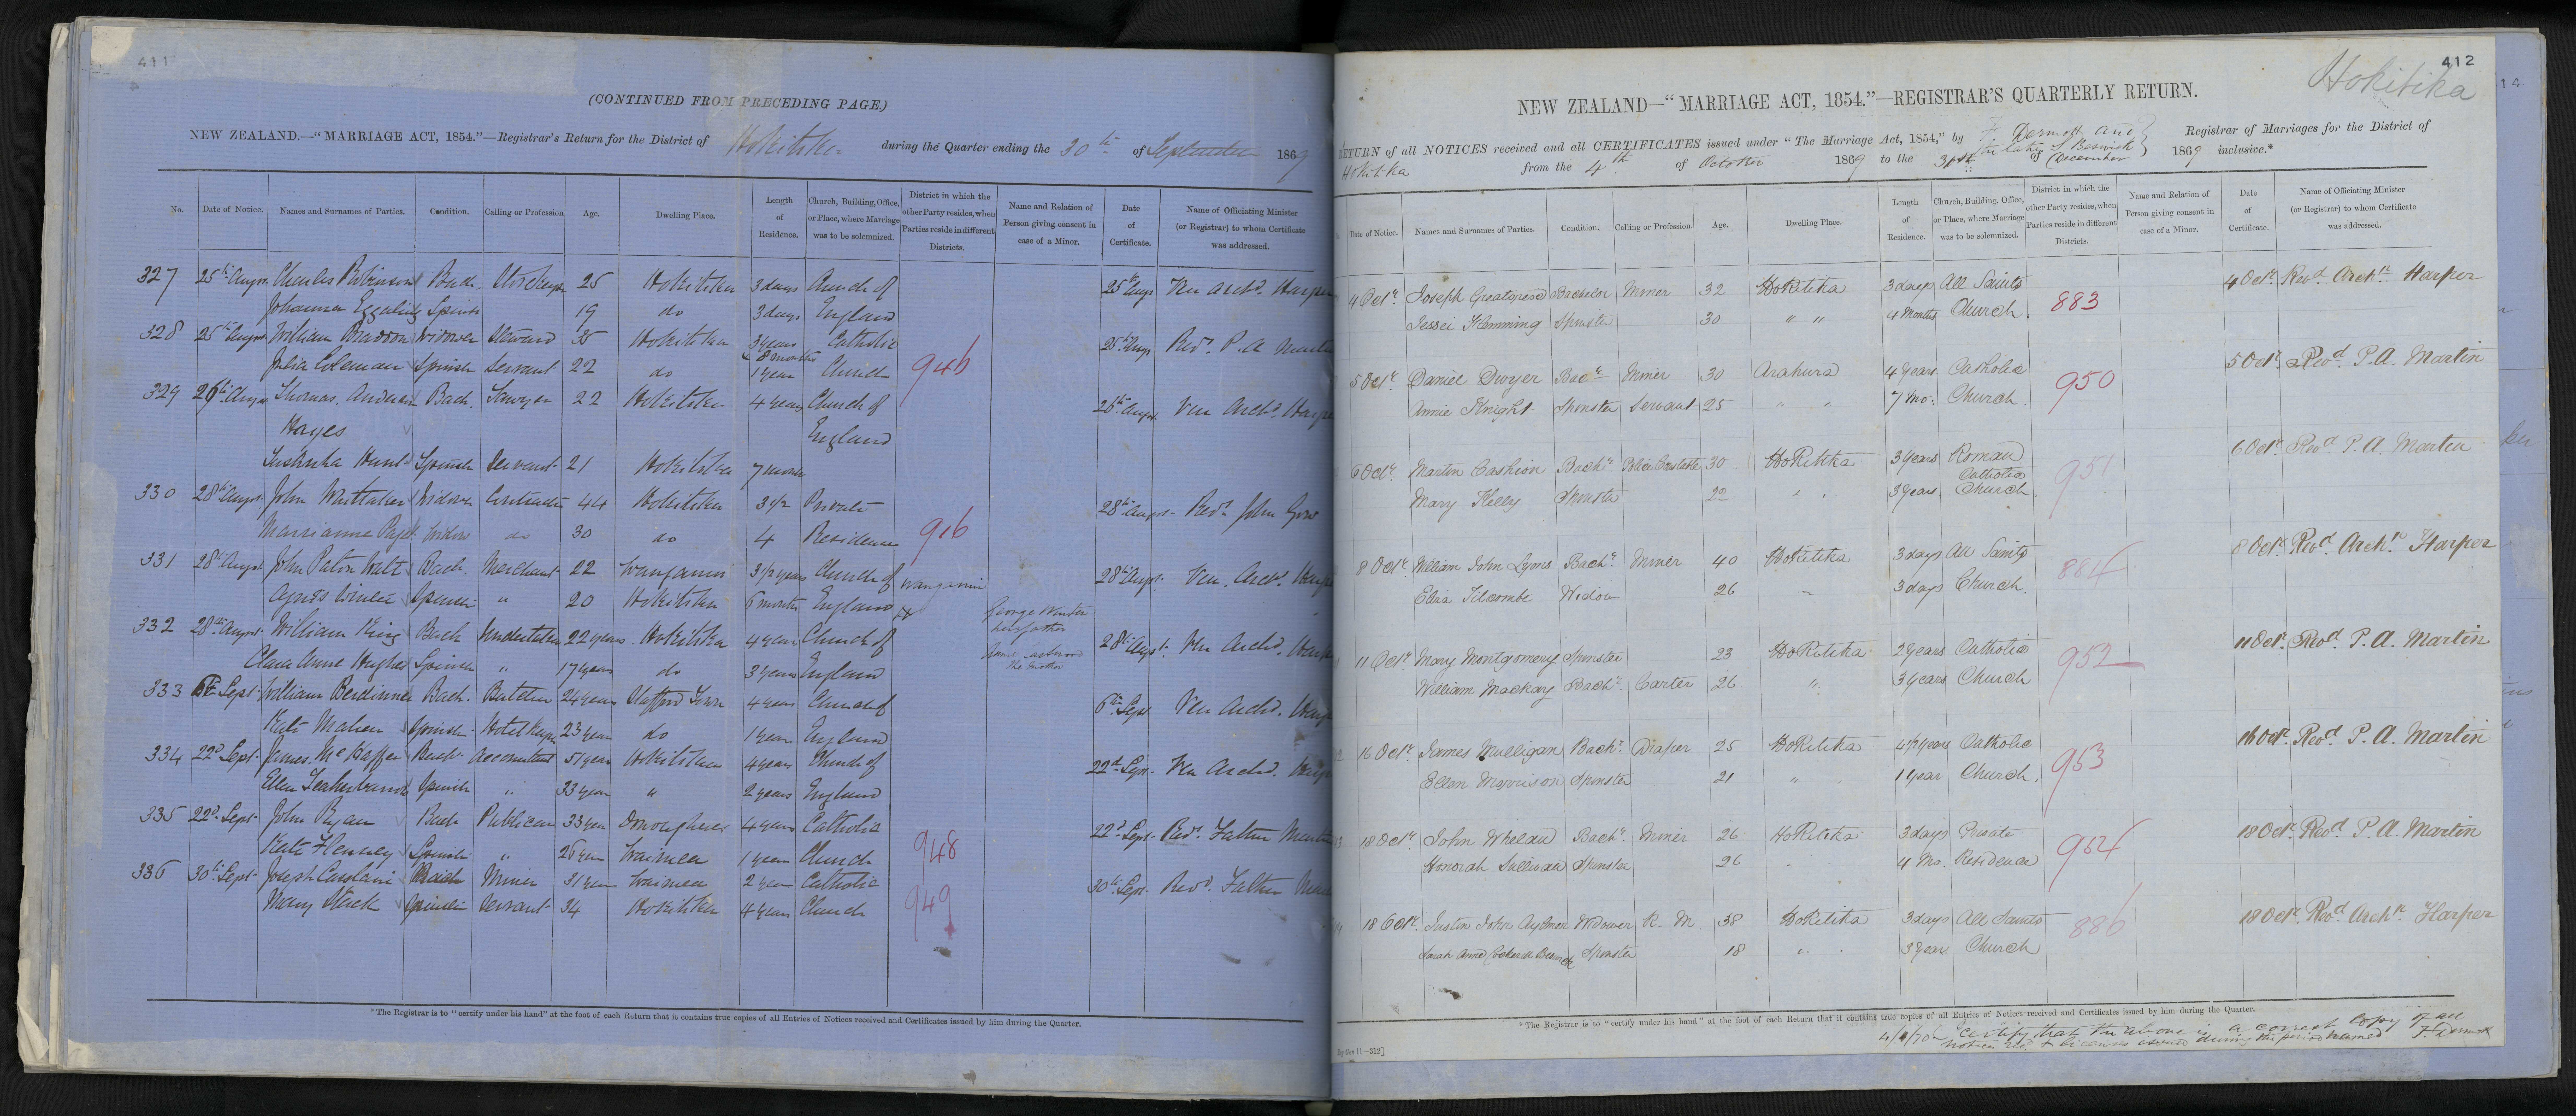 411
(CONTINUED FROM PRECEDING PAGE.)
NEW ZEALAND.—"MARRIAGE ACT, 1854."—Registrar's Return for the District of Hokitika during the Quarter ending the 30th of September 1869
No. Date of Notice. Names and Surnames of Parties. Condition. Calling or Profession Age. Dwelling Place. Length of Residence. Church, Building, Office, or Place, where Marriage was to be solemnized. District in which the other Party resides, when Parties reside in different Districts. Name and Relation of Person giving consent in case of a Minor. Date of Certificate. Name of Officiating Minister (or Registrar) to whom Certificate was addressed.
327 25th Augst Charles Robinson Bach. 25 Hokitika 3 days Church of 25th Augt Ven Archd. Harper
Johanna Spinster 19 do 3 days England
328 25th Augst William Widower Steward 35 Hokitika 3 years Catholic 25th Augt Revd. P. A. Martin
8 months
Julia Coleman Spinster Servant 22 do 1 year Church 946
329 26th Augst Thomas Anderson Bach. Sawyer 22 Hokitika 4 years Church of 26th Augst Ven Archd. Harper
Hayes England
Hunt Spinster Servant 21 Hokitika 7 months
330 28th Augst John Whittaker Widower Contractor 44 Hokitika 3 1/2 Private 28th Augst Revd. John Gow
Marrianne Widow do 30 do 4 Residence 916
331 28th Augst John Paton Watt Bach. Merchant 22 Wanganui 3 1/2 years Church of Wanganui 28th Augst Ven. Archd. Harper
Agnes Spinster " 20 Hokitika 6 months England George
her father
332 28th Augst William King Bach Undertaker 22 years Hokitika 4 years Church of 28th Augst Ven Archd. Harper
Clara Anne Hughes Spinster " 17 years do 3 years England
the mother
333 6th Sept William Berdinner Bach. Butcher 24 years Stafford Town 4 years Church of 6th Sept Ven Archd. Harper
Kate Maher Spinster Hotel Keeper 23 years do 1 year England
334 22d Sept James Bach Accountant 51 years Hokitika 4 years Church of 22d Sept Ven Archd. Harper
Ellen Spinster " 33 years " 2 years England
335 22d Sept John Ryan Bach Publican 33 years 4 years Catholic 22d Sept Revd. Father Martin
Kate Spinster " 25 years Waimea 1 year Church 948
336 30th Sept Joseph Bach Miner 31 years Waimea 2 years Catholic 30th Sept Revd. Father
Mary Spinster Servant 34 Hokitika 4 years Church 949
*The Registrar is to "certify under his hand" at the foot of each Return that it contains true copies of all Entries of Notices received and Certificates issued by him during the Quarter.
412
Hokitika
NEW ZEALAND—"MARRIAGE ACT, 1854."—REGISTRAR'S QUARTERLY RETURN.
RETURN of all NOTICES received and all CERTIFICATES issued under "The Marriage Act, 1854," by F. Dermott and the late S Beswick Registrar of Marriages for the District of
Hokitika from the 4th of October 1869 to the 31st of December 1869 inclusive.*
Date of Notice. Names and Surnames of Parties. Condition. Calling or Profession. Age. Dwelling Place. Length of Residence. Church, Building, Office, or Place, where Marriage was to be solemnized. District in which the other Party resides, when Parties reside in different Districts. Name and Relation of Person giving consent in case of a Minor. Date of Certificate. Name of Officiating Minister (or Registrar) to whom Certificate was addressed.
4 Octr. Joseph Greatorex Bachelor Miner 32 Hokitika 3 days All Saints 883 4 Octr. Revd Archn. Harper
Jessei Flemming Spinster 30 " " 4 Months Church.
5 Octr. Daniel Dwyer Bachr Miner 30 Arahura 4 years Catholic 950 5 Octr. Revd P. A. Martin
Annie Knight Spinster Servant 25 " " 7 Mo: Church.
6 Octr. Martin Cashion Bachr. Police Constable 30 Hokitika 3 years Roman 951 6 Octr. Revd P. A. Martin
Catholic
Mary Kelly Spinster 22 " " 3 years Church
8 Octr. William John Lyons Bachr. Miner 40 Hokitika 3 days All Saints 884 8 Octr. Revd. Archn Harper
Eliza Widow 26 " 3 days Church.
11 Octr. Mary Montgomery Spinster 23 Hokitika 2 years Catholic 952 11 Octr. Revd P. A. Martin
William Mackay Bachr. Carter 26 " 3 years Church
16 Octr. James Mulligan Bachr. Draper 25 Hokitika 4 1/2 years Catholic 953 16 Octr. Revd. P. A. Martin
Ellen Morrison Spinster 21 " 1 year Church.
18 Octr. John Whelan Bachr. Miner 26 Hokitika 3 days Private 954 18 Octr. Revd P. A. Martin
Honorah Sullivan Spinster 26 " 4 Mo. Residence
18 Octr. Justin John Aylmer Widower R. M. 38 Hokitika 3 days All Saints 886 18 Octr. Revd Archn. Harper
Sarah Anne Cookerill Beswick Spinster 18 " " 3 years Church
*The Registrar is to "certify under his hand" at the foot of each Return that it contains true copies of all Entries of Notices received and Certificates issued by him during the Quarter.
I certify that the above is a correct Copy of all
notices &c. & licenses issued during the period named F. Dermott